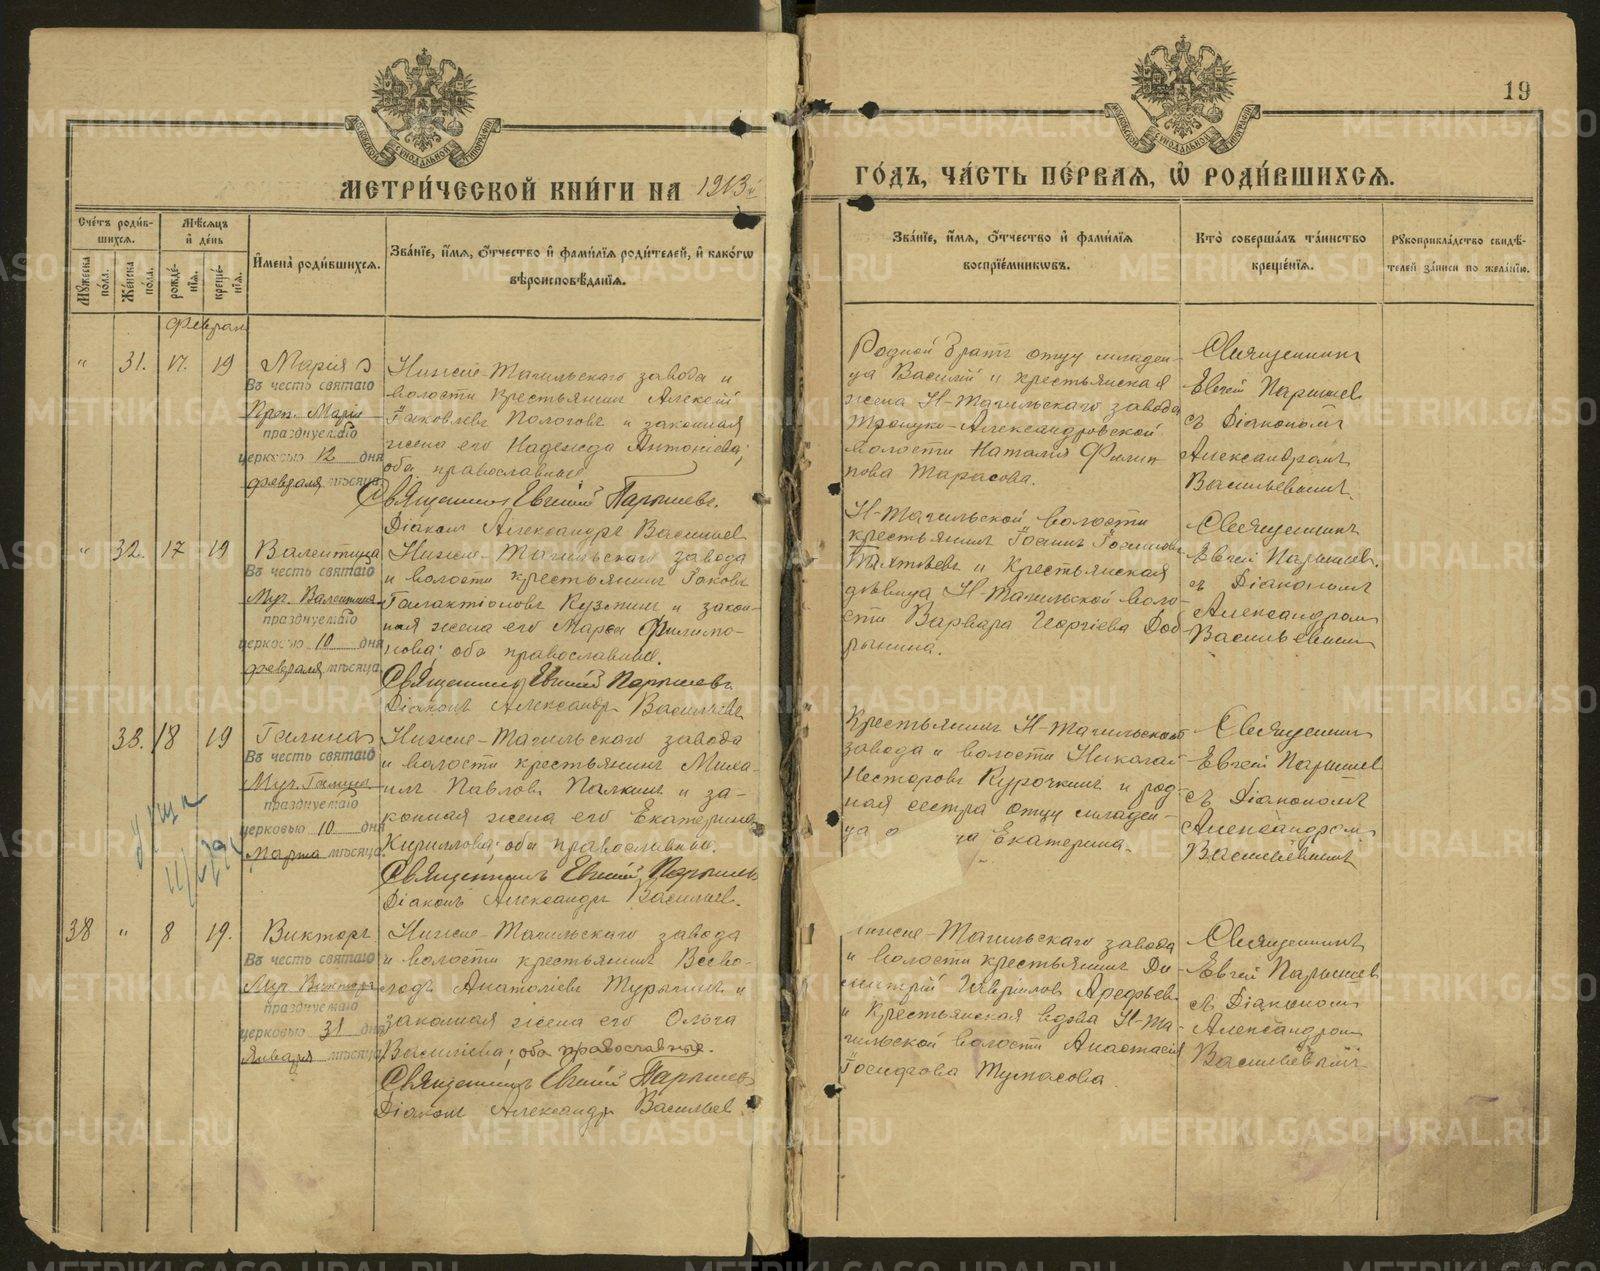 19
МЕТРИ́ЧЕСКОЙ КНИ́ГИ НА 1913й
ГО́ДЪ, ЧА́СТЬ ПЕ́РВАѦ, Ѡ҆ РОДИ́ВШИХСѦ.
Сче́тъ роди́вшихсѧ.
Мѣ́сѧцъ и҆ де́нь
Мꙋ́жеска по́ла.
Же́нска по́ла.
рожде́нїѧ.
креще́нїѧ.
И҆мена̀ роди́вшихсѧ.
Зва́нїе, и҆́мѧ, ѻ҆́тчество и҆ фами́лїѧ роди́телей, и҆ како́гѡ
вѣроисповѣ́данїѧ.
Зва́нїе, и҆́мѧ, ѻ҆́тчество и҆ фами́лїѧ
воспрїе́мникѡвъ.
Кто̀ соверша́лъ та́инство
креще́нїѧ.
Рꙋкоприкла́дство свидѣ́-
телей за́писи по жела́нїю.
Феврал
" 31. 17. 19 Марія
Въ честь святаго
Преп. Маріи
празднуемаго
церковью 12 дня
февраля мѣсяца
Нижне-Тагильскаго завода и
волости крестьянинъ Алексѣй
Іаковлевъ Пологовъ и законная
жена его Надежда Антоніева;
оба православные
Священникъ Евгеній Парышевъ.
Діаконъ Александръ Васильев
Родной братъ отцу младен-
ца Василій и крестьянская
жена Н-Тагильскаго завода
Троицко-Александровской
волости Наталія Филип
пова Тарасова.
Священникъ
Евгеній Парышев
съ Діакономъ
Александромъ
Васильевымъ.
" 32. 17 19 Валентина
Въ честь святаго
Муч. Валентины
празднуемаго
церковью 10 дня
февраля мѣсяца
Нижне-Тагильскаго завода
и волости крестьянинъ Іаковъ
Галактіоновъ Кузнинъ и закон-
ная жена его Марѳа Филимо-
нова; оба православные.
Священникъ Евгеній Парышевъ
Діаконъ Александръ Васильевъ
Н-Тагильской волости
крестьянинъ
и крестьянская
дѣвица Н-Тагильской воло-
сти Варвара Георгіева Доб-
рынина.
Священникъ
Евгеній Парышев.
съ Діакономъ
Александромъ
Васильевымъ
33. 18 19 Галина
Въ честь святаго
Муч. Галины
празднуемаго
церковью 10 дня
Марта мѣсяца
Нижне-Тагильскаго завода
и волости крестьянинъ Миха-
илъ Павловъ Палкинъ и за-
конная жена его Екатерина
Кириллова; оба православные.
Священникъ Евгеній Парышевъ
Діаконъ Александръ Васильев.
Крестьянинъ Н-Тагильскаго
завода и волости Николай
Несторовъ Курочкинъ и род-
ная сестра отцу младен-
ца Екатерина.
Священникъ
Евгеній Парышев
съ Діакономъ
Александромъ
Васильевымъ
38 " 8 19. Викторъ
Въ честь святаго
Муч. Виктора
празднуемаго
церковью 31 дня
Января мѣсяца
Нижне-Тагильскаго завода
и волости крестьянинъ Всево-
лодъ Анатоліевъ Турыгинъ и
законная жена его Ольга
Василіева; оба православные.
Священникъ Евгеній Парышевъ
Діаконъ Александръ Васильев.
ижне-Тагильскаго завода
и волости крестьянинъ Ди-
митрій Гавріиловъ Арефьев
и крестьянская вдова Н-Та-
гильской волости Анастасія
Іосифова Тумасова.
Священникъ
Евгеній Парышев
съ Діакономъ
Александромъ
Васильевымъ
METRIKI.GASO-URAL.RU